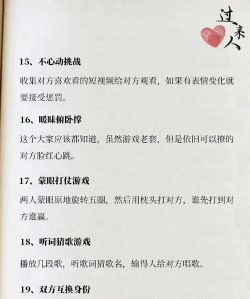 过来人
15、不心动挑战
收集对方喜欢看的短视频给对方观看，如果有表情变化就
要接受惩罚。
16、暧昧俯卧撑
这个大家应该都知道，虽然游戏老套，但是依旧可以撩的
对方脸红心跳。
17、蒙眼打仗游戏
两人蒙眼原地旋转五圈，然后用枕头打对方，谁先打到对
方谁赢。
18、听词猜歌游戏
播放几段歌，听歌词猜歌名，输得人给对方唱歌。
19、双方互换身份